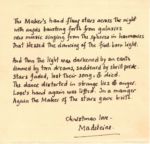 The Maker's hand flung stars across the night
with angels haunting forth from
new music singing from the spheres in harmonies
that blessed the dancing of the first born light.

And then the light was darkened by an
dimmed by torn dreams, suddened by pride.
Stars faded, lost their song, & died.
The dance distorted in strange lies & anger.
Love's hand again was lifted. In a manger
Again the Maker of the stars gave birth.

Christmas love -
Madeleine.